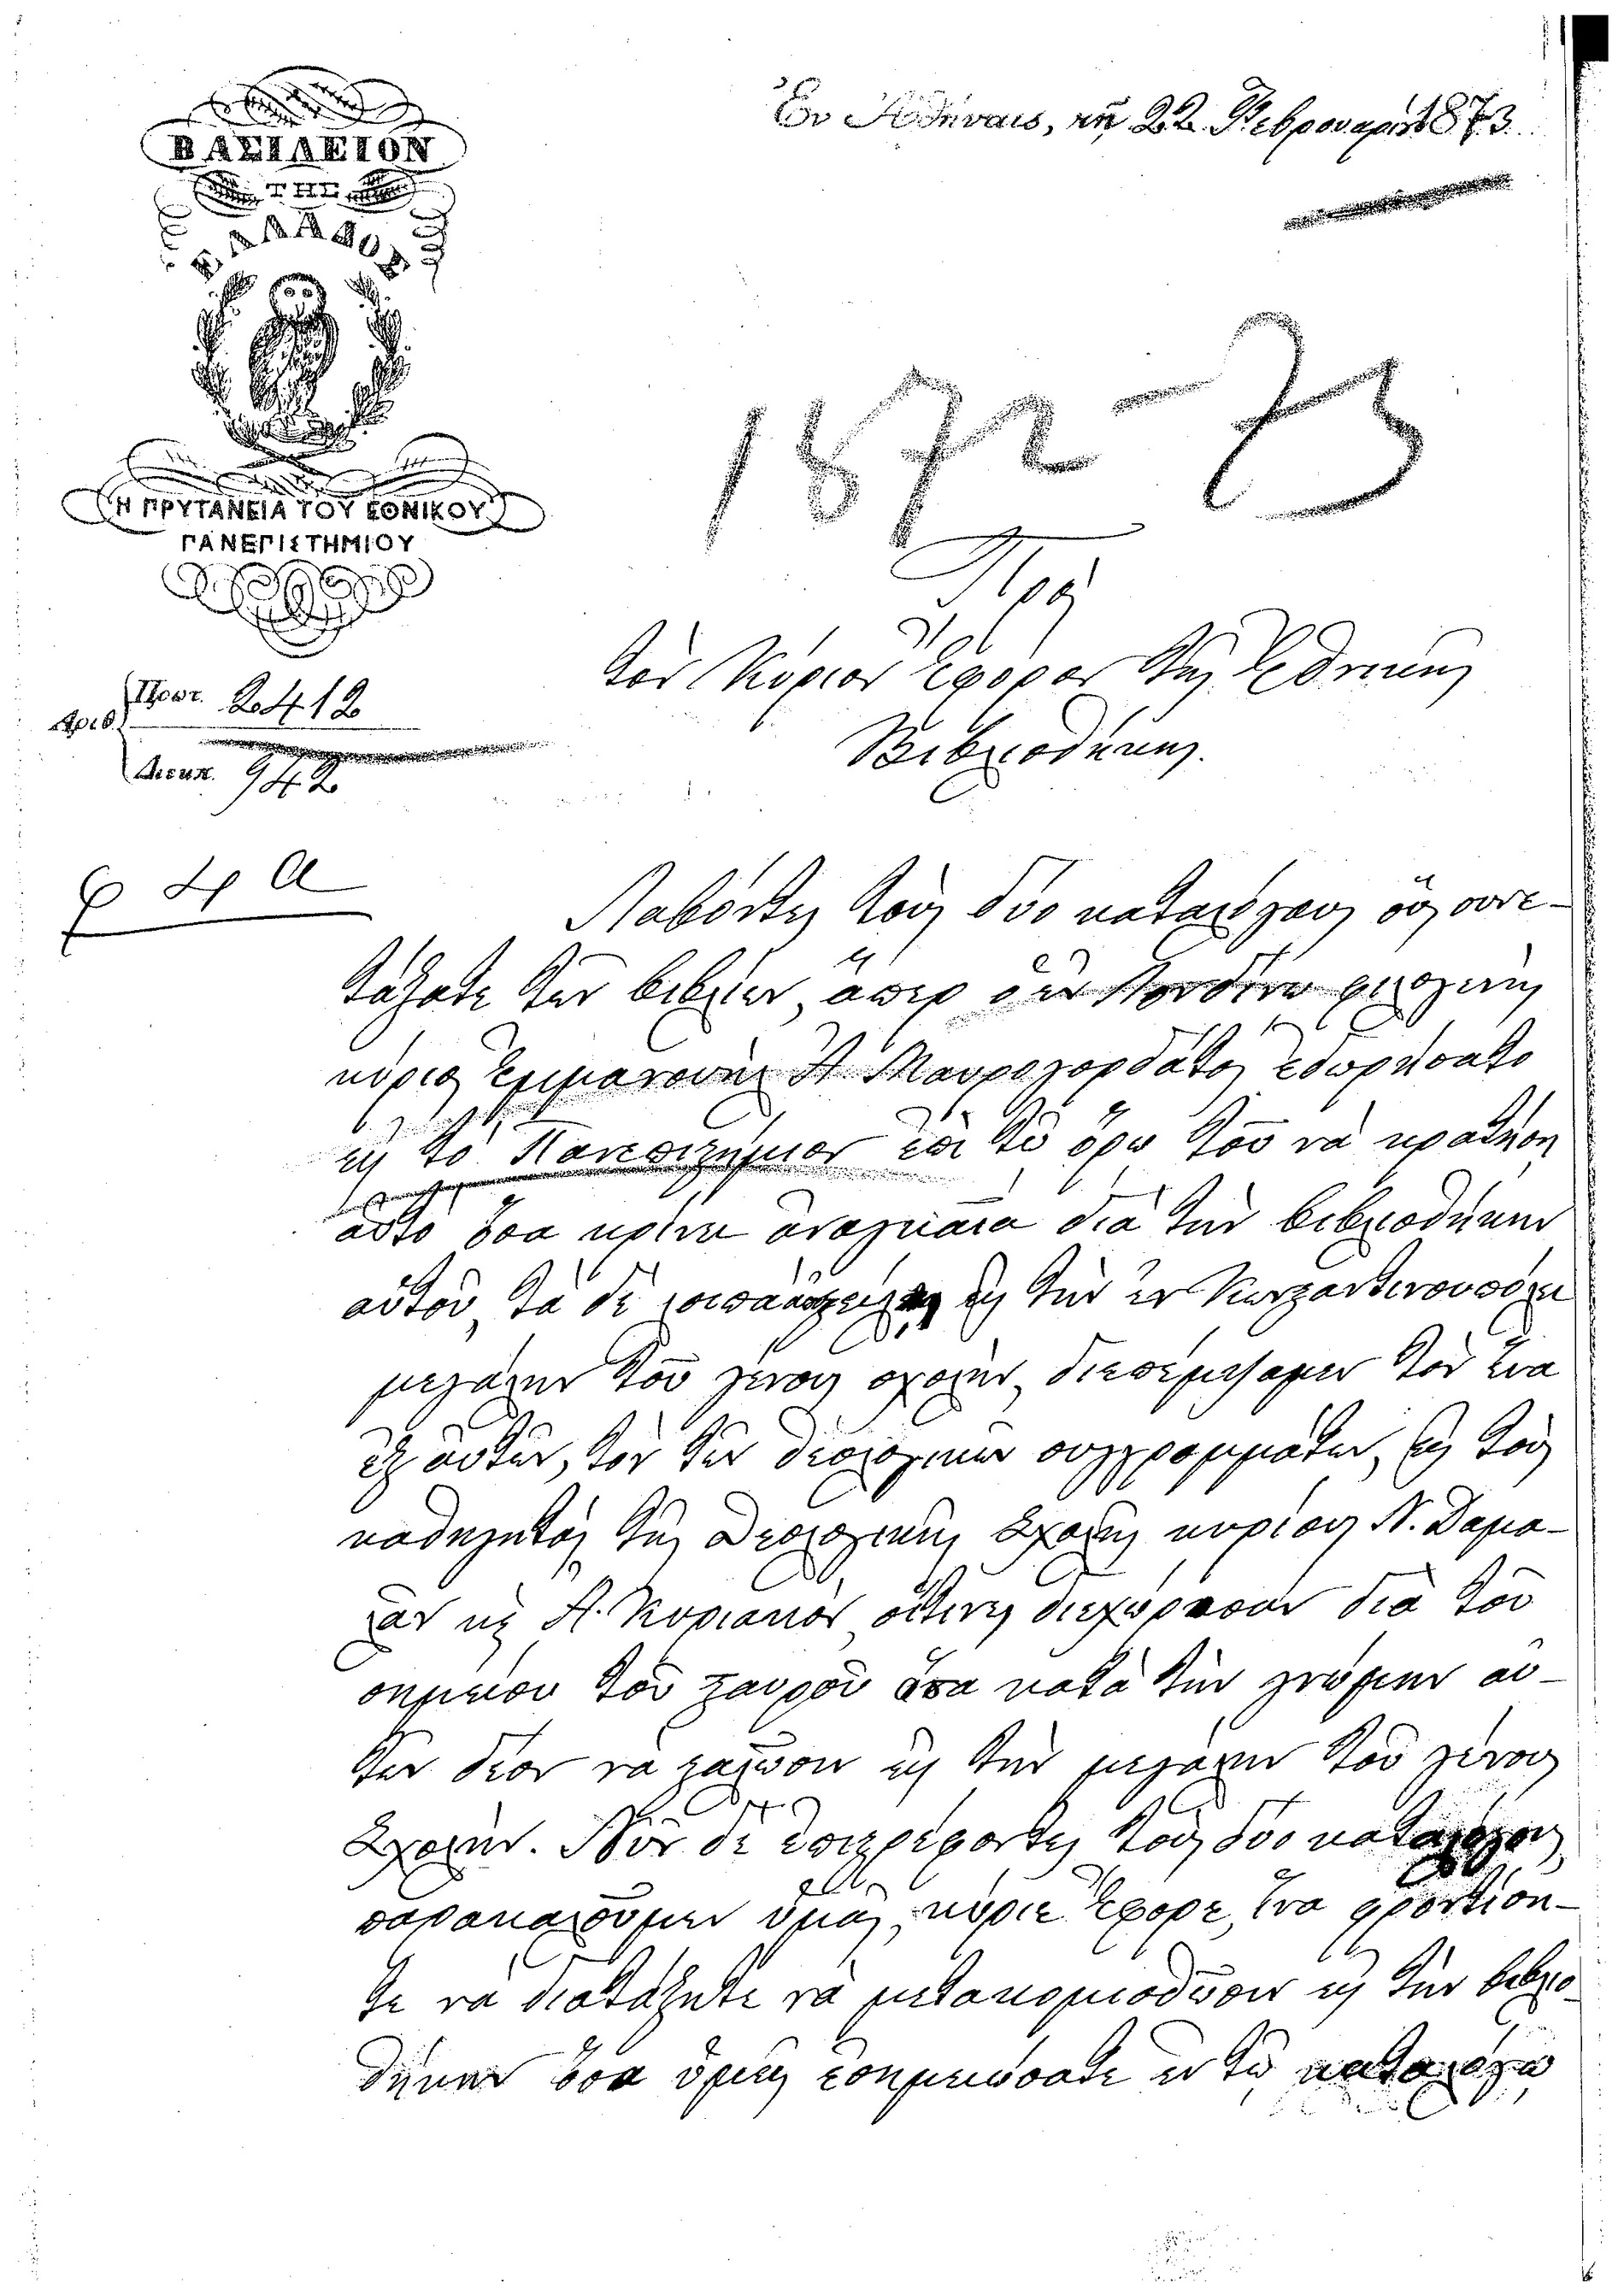 Ἐν Ἀθήναις, τῇ 22 Φεβρουαρίου 1873.
ΒΑΣΙΛΕΙΟΝ
ΤΗΣ
ΕΛΛΑΔΟΣ
1872-73
Η ΠΡΥΤΑΝΕΙΑ ΤΟΥ ΕΘΝΙΚΟΥ
ΠΑΝΕΠΙΣΤΗΜΙΟΥ
Πρὸς
τὸν Κύριον Ἔφορον τῆς Ἐθνικῆς
Βιβλιοθήκης.
Ἀριθ. Πρωτ. 2412
Διεκπ. 942
4 α
Λαβόντες τοὺς δύο καταλόγους οὓς συνε-
τάξατε τῶν βιβλίων, ἅπερ ὁ ἐν Λονδίνῳ φιλογενὴς
κύριος Ἐμμανουὴλ Α Μαυρογορδάτος ἐδωρήσατο
εἰς τὸ Πανεπιστήμιον ἐπὶ τῷ ὅρῳ τοῦ νὰ κρατήσῃ
αὐτὸ ὅσα κρίνει ἀναγκαῖα διὰ τὴν βιβλιοθήκην
αὐτοῦ, τὰ δὲ λοιπὰ εἰς τὴν ἐν Κωνσταντινουπόλει
μεγάλην τοῦ γένους σχολήν, διεπέμψαμεν τὸν ἕνα
ἐξ αὐτῶν, τὸν τῶν θεολογικῶν συγγραμμάτων, εἰς τοὺς
καθηγητὰς τῆς Θεολογικῆς Σχολῆς κυρίους Ν. Δαμα-
λᾶν κὲ Α. Κυριακὸν οἵτινες διεχώρισαν διὰ τοῦ
σημείου τοῦ σταυροῦ ὅσα κατὰ τὴν γνώμην αὐ-
τῶν δέον νὰ σταλῶσιν εἰς τὴν μεγάλην τοῦ γένους
Σχολήν. Νῦν δὲ ἐπιστρέφοντες τοὺς δύο καταλόγους
παρακαλοῦμεν ὑμᾶς, κύριε Ἔφορε, ἵνα φροντίση-
τε νὰ διατάξητε νὰ μετακομισθῶσιν εἰς τὴν βιβλιο-
θήκην ὅσα ὑμεῖς ἐσημειώσατε ἐν τῷ καταλόγῳ